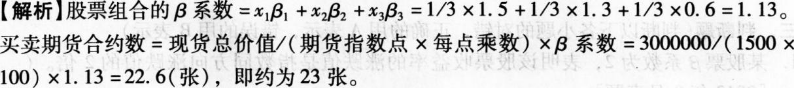 【解析】股票组合的β系数=x₁β₁+x₂β₂+x₃β₃=1/3×1.5+1/3×1.3+1/3×0.6=1.13。
买卖期货合约数=现货总价值/(期货指数点×每点乘数)×β系数=3000000/(1500×
100)×1.13=22.6(张)，即约为23张。